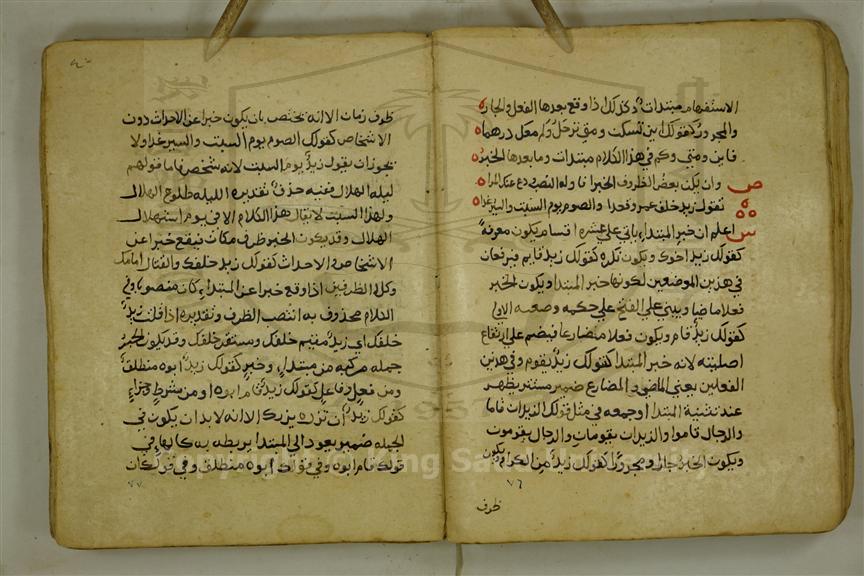 الاستفهام مبتدات وكذلك اذا وقع بعدها الفعل والجار
والمجرور كقولك اين تسكت ومتي ترحل وكم معك درهما
فاين ومتي وكم في هذا الكلام مبتدات وما بعدها الخبر
ص وان يكن بعض الظروف الخبرا فاوله النصب ودع عنك المرا
تقول زيد خلف عمرو قعدا والصوم يوم السبت والسير غدا
ش اعلم ان خبر المبتداء ياتي علي عشرة اقسام يكون معرفة
كقولك زيد اخوك ويكون نكره كقولك زيد قايم فيرفعان
في هذين الموضعين لكونها خبر المبتدا ويكون الخبر
فعلا ماضيا ويبني علي الفتح علي حكمه وصفته الاولي
كقولك زيد قام ويكون فعلا مضارعا فيضم علي ارتفاع
اصليته لانه خبر المبتدا كقولك زيد يقوم وفي هذين
الفعلين يعني الماضي والمضارع ضمير مستتر يظهر
عند تثنية المبتدا وجمعه في مثل قولك الزيدان قاما
والرجال قاموا والزيدان يقومان والرجال يقومون
ويكون الخبر جارا ومجرورا كقولك زيد من الكرام ويكون
٧٦
ظرف
ظرف زمان الا انه يختص بان يكون خبرا عن الاحداث دون
الاشخاص كقولك الصوم يوم السبت والسير غدا ولا
يجوز ان يقول زيد يوم السبت لانه شخص فاما قولهم
ليلة الهلال ففيه حذف تقديره الليلة طلوع الهلال
ولهذا السبت لا يقال هذا الكلام الا في يوم استهلال
الهلال وقد يكون الخبر ظرف مكان فيقع خبرا عن
الاشخاص والاحداث كقولك زيد خلفك والقتال امامك
وكلا الظرفين اذا وقع خبرا عن المبتداء كان منصوبا وفي
الكلام محذوف به انتصب الظرف وتقديره اذا قلت زيد
خلفك اي زيد مقيم خلفك ومستقر خلفك وقد يكون الخبر
جمله مركبه من مبتداء وخبر كقولك زيد ابوه منطلق
ومن فعل وفاعل كقولك زيد قام ابوه او من شرط وجزاء
كقولك زيد ان تزره يزرك الا انه لابد ان يكون في
الجمله ضمير يعود الي المبتدا يربطه به كالهاء في
قولك قام ابوه وفي قولك ابوه منطلق وفي قولك ان
٧٧
Copyright © King Saud University
1957